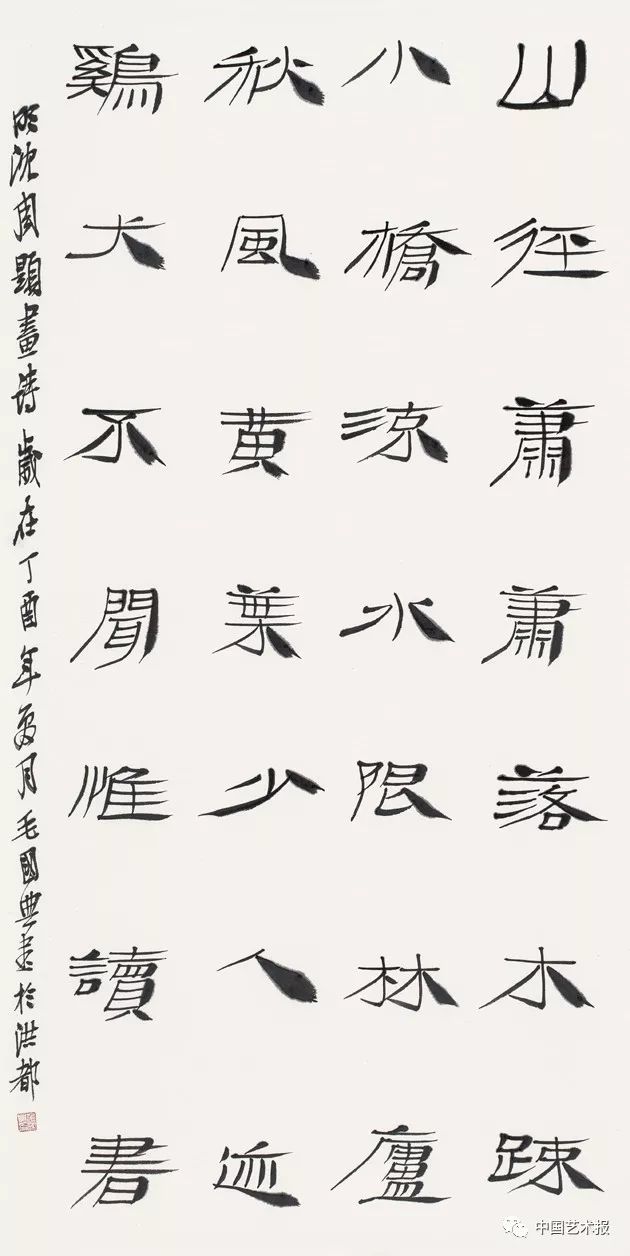 山徑蕭蕭落木疎
小橋涼水限林廬
秋風黄葉少人迹
鷄犬不聞惟讀書
明沈周題畫詩歲在丁酉年夏月毛國典書於洪都
中国艺术报